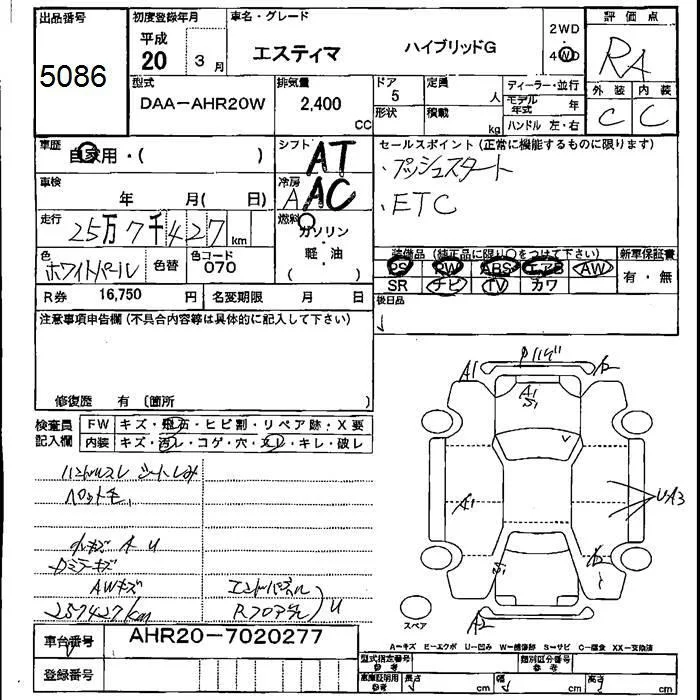 出品番号
5086
初度登録年月
平成
20 3月
車名・グレード
エスティマ ハイブリッドG
2WD
4WD
評価点
RA
外装 内装
C C
型式
DAA-AHR20W
排気量
2,400
CC
ドア
5
定員
人
形状
積載
kg
ディーラー・並行
モデル年式 年
ハンドル 左・右
車歴
自家用・( )
シフト
AT
セールスポイント(正常に機能するものに限ります)
・プッシュスタート
・ETC
車検
年 月( 日)
冷房
A AC
走行
25万7千427km
燃料
ガソリン
・
軽・油
( )
色
ホワイトパール
色替
色コード
070
装備品(純正品に限り○をつけて下さい)
PS PW ABS エアB AW
SR ナビ TV カワ
新車保証書
有・無
R券 16,750 円
名変期限 月 日
後日品
注意事項申告欄(不具合内容等は具体的に記入して下さい)
修復歴 有 〔箇所 )
検査員
記入欄
FW キズ・飛石・ヒビ割・リペア跡・X要
内装 キズ・汚レ・コゲ・穴・スレ・キレ・破レ
ハンドルスレ シートしみ
ペット毛
小キズ A U
Dミラーキズ
AWキズ
257427km
エンドパネル
Rフロア先
U
A1
A1
S1
A1
UA3
S1
A2
スペア
A-キズ E-エクボ U-凹み W-補修跡 S-サビ C-腐食 XX-交換済
車台番号
AHR20-7020277
登録番号
型式指定番号
参考
類別区分番号
参考
車庫証明用
参考
長さ cm
幅 cm
高さ cm